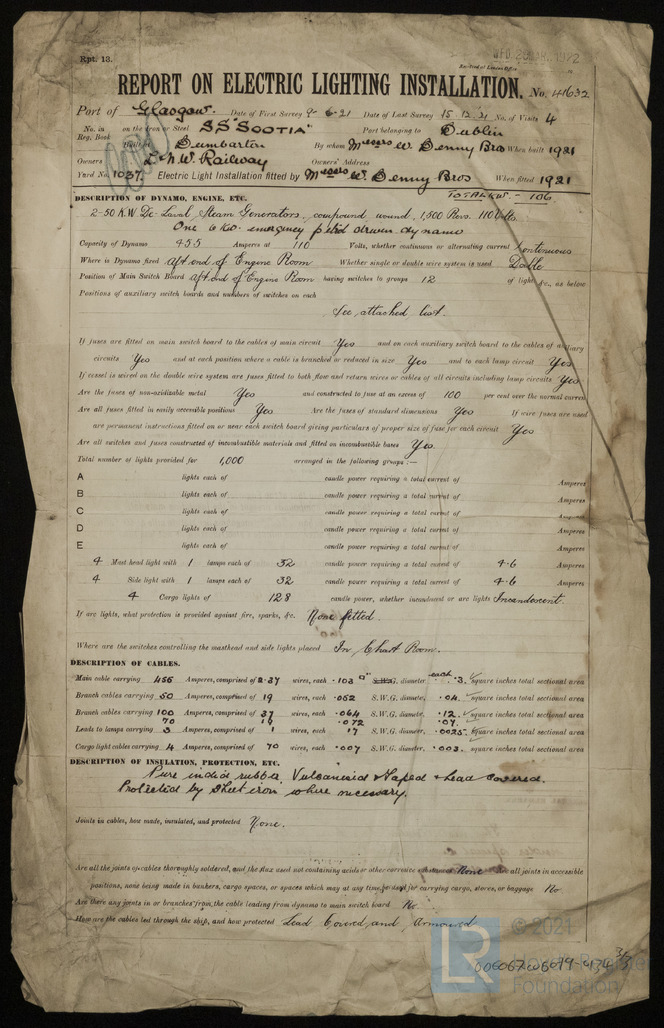 Rpt. 13.
REPORT ON ELECTRIC LIGHTING INSTALLATION. No. 41632
Port of Glasgow. Date of First Survey 9-6-21 Date of Last Survey 15.12.21 No. of Visits 4
No. in Reg. Book on the Iron or Steel SS "SCOTIA" Port belonging to Dublin
Built at Dumbarton By whom Messrs W. Denny Bros When built 1921
Owners L & N.W. Railway Owners' Address
Yard No. 1037 Electric Light Installation fitted by Messrs W. Denny Bros When fitted 1921
DESCRIPTION OF DYNAMO, ENGINE, ETC. TOTAL KW. - 106
2-50 K.W. De Laval Steam Generators, compound wound, 1,500 Revs. 110 Volts
One 6 KW. emergency petrol driven dynamo
Capacity of Dynamo 455 Amperes at 110 Volts, whether continuous or alternating current Continuous
Where is Dynamo fixed aft end of Engine Room Whether single or double wire system is used Double
Position of Main Switch Board aft end of Engine Room having switches to groups 12 of lights, &c., as below
Positions of auxiliary switch boards and numbers of switches on each
See attached list.
If fuses are fitted on main switch board to the cables of main circuit Yes and on each auxiliary switch board to the cables of auxiliary
circuits Yes and at each position where a cable is branched or reduced in size Yes and to each lamp circuit Yes
If vessel is wired on the double wire system are fuses fitted to both flow and return wires or cables of all circuits including lamp circuits Yes
Are the fuses of non-oxidizable metal Yes and constructed to fuse at an excess of 100 per cent over the normal current
Are all fuses fitted in easily accessible positions Yes Are the fuses of standard dimensions Yes If wire fuses are used
are permanent instructions fitted on or near each switch board giving particulars of proper size of fuse for each circuit Yes
Are all switches and fuses constructed of incombustible materials and fitted on incombustible bases Yes.
Total number of lights provided for 1,000 arranged in the following groups:—
A lights each of candle power requiring a total current of Amperes
B lights each of candle power requiring a total current of Amperes
C lights each of candle power requiring a total current of Amperes
D lights each of candle power requiring a total current of Amperes
E lights each of candle power requiring a total current of Amperes
4 Mast head light with 1 lamps each of 32 candle power requiring a total current of 4.6 Amperes
4 Side light with 1 lamps each of 32 candle power requiring a total current of 4.6 Amperes
4 Cargo lights of 128 candle power, whether incandescent or arc lights Incandescent.
If arc lights, what protection is provided against fire, sparks, &c. None fitted.
Where are the switches controlling the masthead and side lights placed In Chart Room.
DESCRIPTION OF CABLES.
Main cable carrying 455 Amperes, comprised of 2-37 wires, each .103 S.W.G. diameter, each .3 square inches total sectional area
Branch cables carrying 50 Amperes, comprised of 19 wires, each .052 S.W.G. diameter, .04 square inches total sectional area
Branch cables carrying 100 Amperes, comprised of 37 wires, each .064 S.W.G. diameter, .12 square inches total sectional area
70 19 .072 .07
Leads to lamps carrying 3 Amperes, comprised of 1 wires, each 17 S.W.G. diameter, .0025 square inches total sectional area
Cargo light cables carrying 4 Amperes, comprised of 70 wires, each .007 S.W.G. diameter, .003 square inches total sectional area
DESCRIPTION OF INSULATION, PROTECTION, ETC.
Pure india rubber, Vulcanised & taped & Lead covered.
Protected by sheet iron where necessary.
Joints in cables, how made, insulated, and protected None.
Are all the joints of cables thoroughly soldered, and the flux used not containing acids or other corrosive substances None Are all joints in accessible
positions, none being made in bunkers, cargo spaces, or spaces which may at any time be used for carrying cargo, stores, or baggage No
Are there any joints in or branches from the cable leading from dynamo to main switch board No.
How are the cables led through the ship, and how protected Lead Covered and Armoured
LR © 2021
Lloyd's Register
Foundation